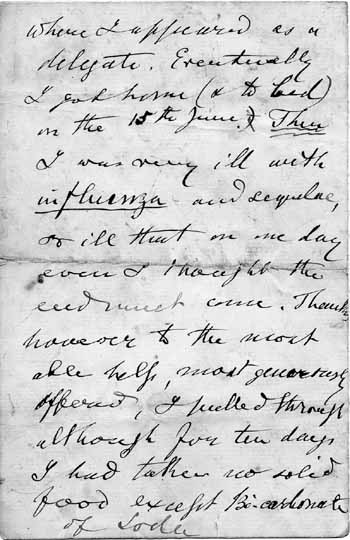 where I appeared as a
delegate. Eventually
I got home (& to bed)
on the 15th June. & Then
I was very ill with
influenza and sequelae,
so ill that on one day
even I thought the
end must come. Thanks
however to the most
able help, most generously
offered, I pulled through
although for ten days
I had taken no solid
food except Bi-carbonate
of Soda